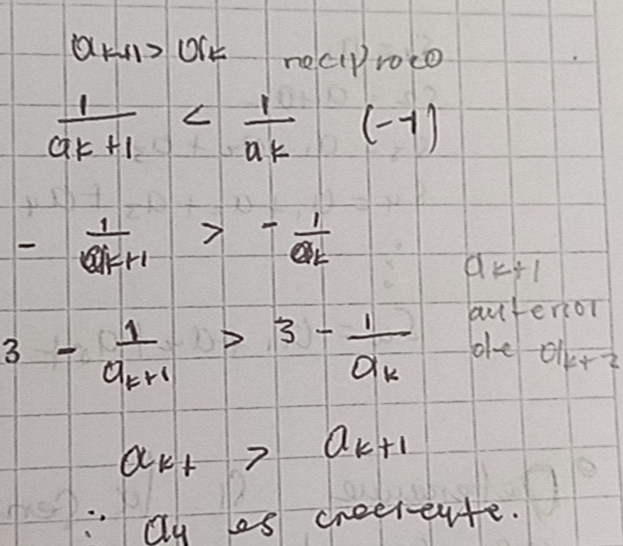 a_{k+1} > a_k reciproco
\frac{1}{a_{k+1}} < \frac{1}{a_k} (-1)
- \frac{1}{a_{k+1}} > - \frac{1}{a_k}
3 - \frac{1}{a_{k+1}} > 3 - \frac{1}{a_k}
a_{k+1
anterior
de a_{k+2
a_{k+ > a_{k+1}
∴ es creciente.